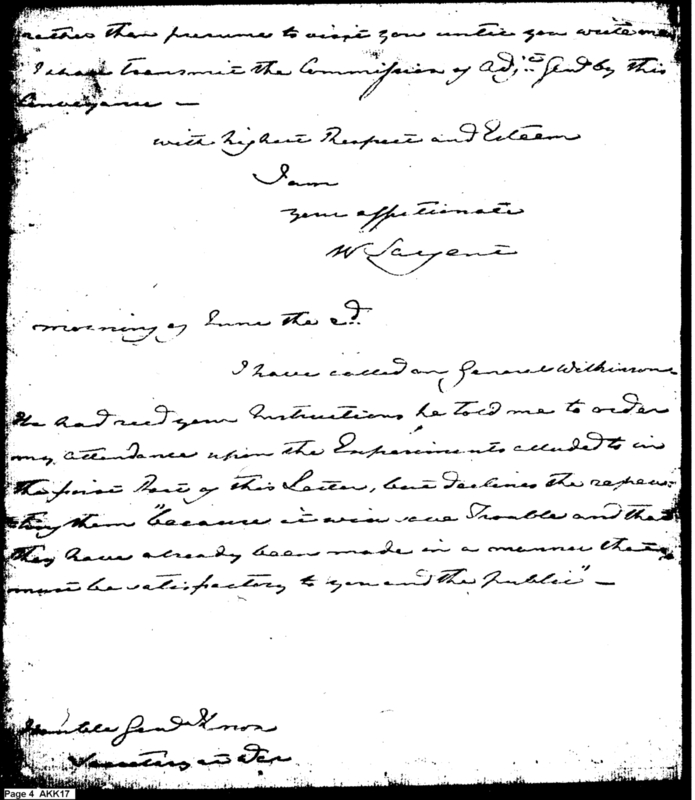 rather than presume to visit you until you write me
I shall transmit the Commission of Adj.t Genl by this
Conveyance —
with highest Respect and Esteem
I am
your affectionate
W Sargent
morning of June the 2d.
I have called on General Wilkinson
He had recd your Instructions he told me to order
my attendance upon the Experiments alluded to in
the first Part of this Letter, but declines the repea-
ting them "because it will save Trouble and that
they have already been made in a manner that
must be satisfactory to you and the Public" —
Honble Genl Knox
Secretary
Page 4 AKK17